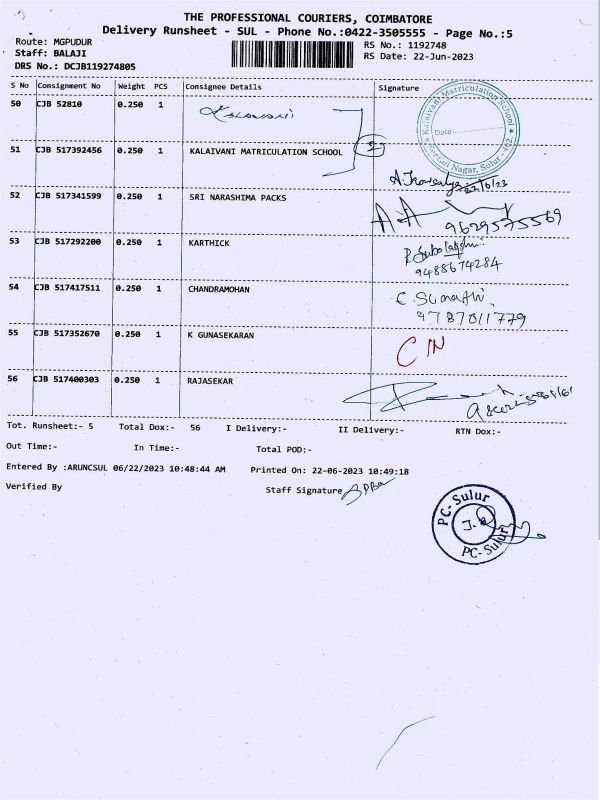 THE PROFESSIONAL COURIERS, COIMBATORE
Delivery Runsheet - SUL - Phone No.:0422-3505555 - Page No.:5
Route: MGPUDUR
RS No.: 1192748
Staff: BALAJI
RS Date: 22-Jun-2023
DRS No.: DCJB119274805
S No Consignment No Weight PCS Consignee Details Signature
50 CJB 52810 0.250 1 Kalaivani
Date:
51 CJB 517392456 0.250 1 KALAIVANI MATRICULATION SCHOOL 2
22/6/23
52 CJB 517341599 0.250 1 SRI NARASHIMA PACKS
9629575569
53 CJB 517292200 0.250 1 KARTHICK
9488674284
54 CJB 517417511 0.250 1 CHANDRAMOHAN
9787011779
55 CJB 517352670 0.250 1 K GUNASEKARAN
56 CJB 517400303 0.250 1 RAJASEKAR
Tot. Runsheet:- 5 Total Dox:- 56 I Delivery:- II Delivery:- RTN Dox:-
Out Time:- In Time:- Total POD:-
Entered By :ARUNCSUL 06/22/2023 10:48:44 AM Printed On: 22-06-2023 10:49:18
Verified By Staff Signature
PC- Sulur
PC- Sulur